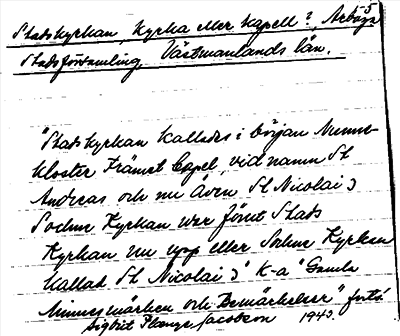 5
Stadskyrkan, Kyrka eller kapell?, Arboga
Stadsförsamling. Västmanlands län.
"Stadskyrkan kallades i början Nunne-
kloster Främst Capel, vid namn St
Andreas och nu även St Nicolai 3
Sochne Kyrkan war förut Stads
Kyrkan nu upp eller Sochne Kyrkan
kallad St Nicolai 3" K-a "Gamla
Minnesmärken och Bemärkelser"
Sigrid Jacobson 1943.